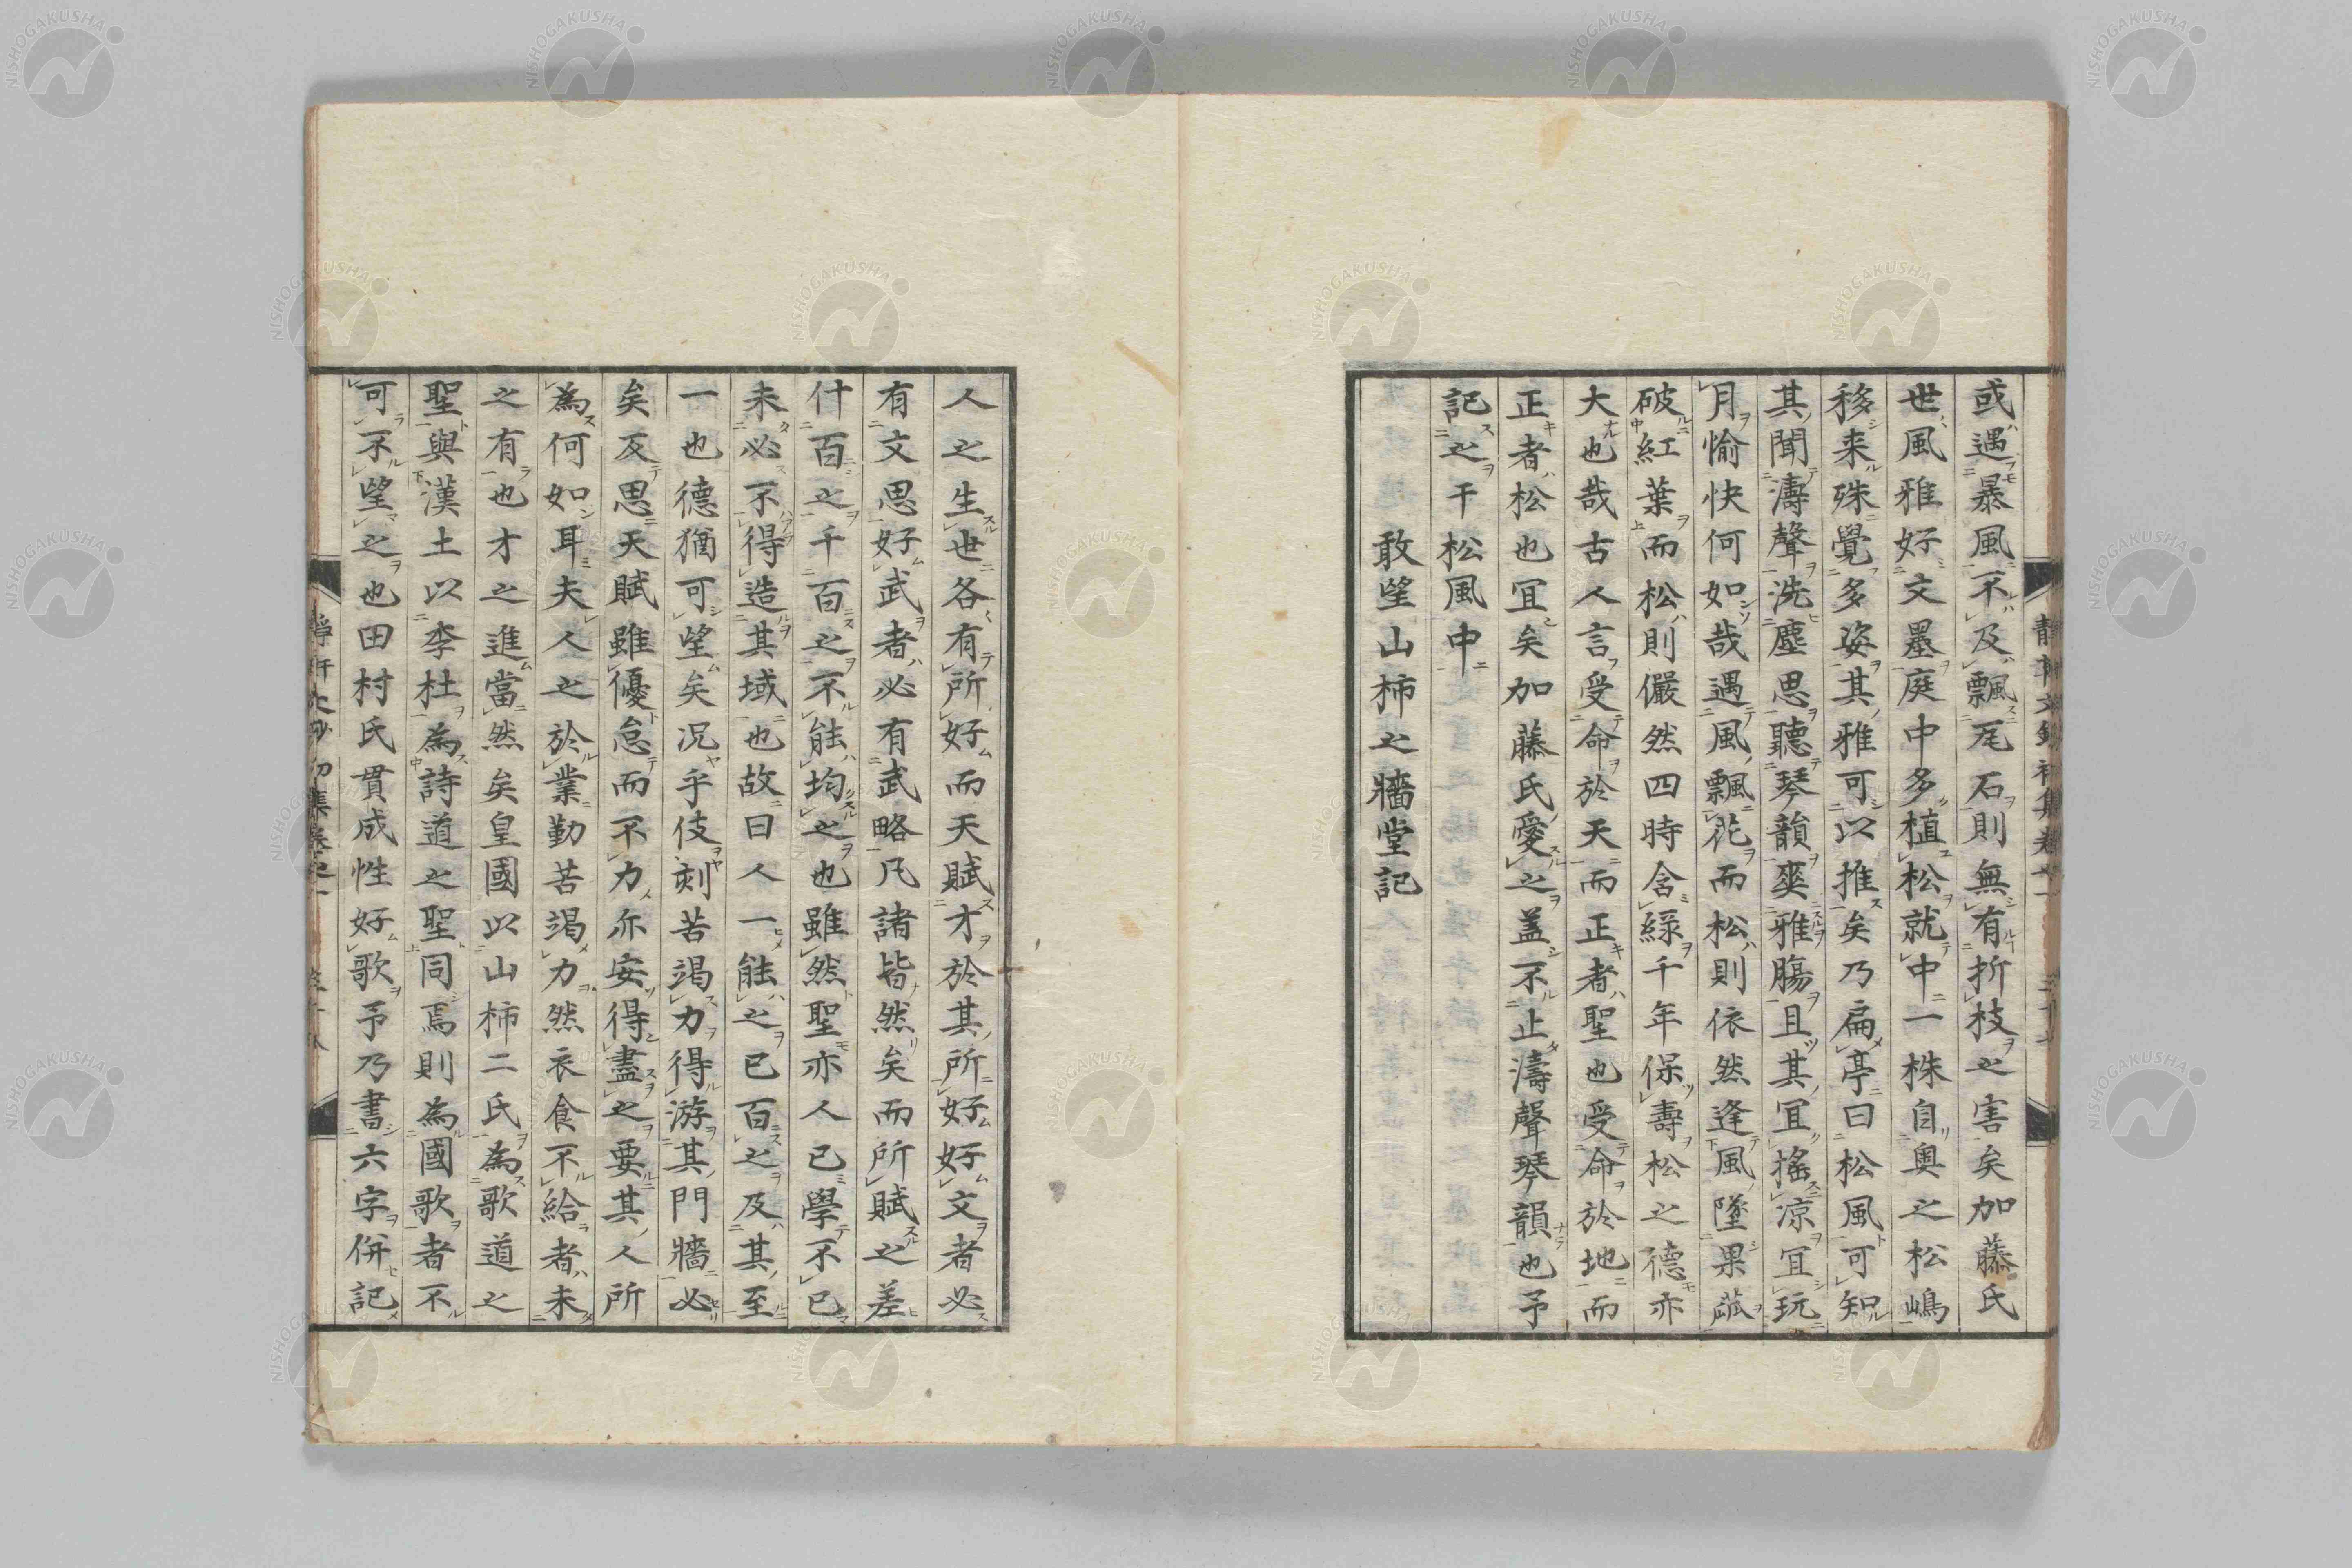 或遇暴風不及飄尾石則無有折枝之害矣加藤氏
世風雅好文墨庭中多植松就中一株自奥之松嶋
移来殊覺多姿其雅可以推矣乃扁亭曰松風可知
其聞濤聲洗塵思聽琴韻爽雅膓且其冝搖凉冝玩
月愉快何如哉遇風飄花而松則依然逢風墜果蓏
破紅葉而松則儼然四時含緑千年保壽松之德亦
大也哉古人言受命於天而正者聖也受命於地而
正者松也冝矣加藤氏愛之盖不止濤聲琴韻也予
記之干松風中
敢望山柿之牆堂記
人之生世各有所好而天賦才於其所好好文者必
有文思好武者必有武略凡諸皆然矣而所賦之差
什百之千百之不能均之也雖然聖亦人已學不已
未必不得造其域也故曰人一能之已百之及其至
一也德猶可望矣况乎伎刻苦竭力得游其門牆必
矣反思天賦雖優怠而不力亦安得盡之要其人所
為何如耳夫人之於業勤苦竭力然衣食不給者未
之有也才之進當然矣皇國以山柿二氏為歌道之
聖與漢土以李杜為詩道之聖同焉則為國歌者不
可不望之也田村氏貫成性好歌予乃書六字併記